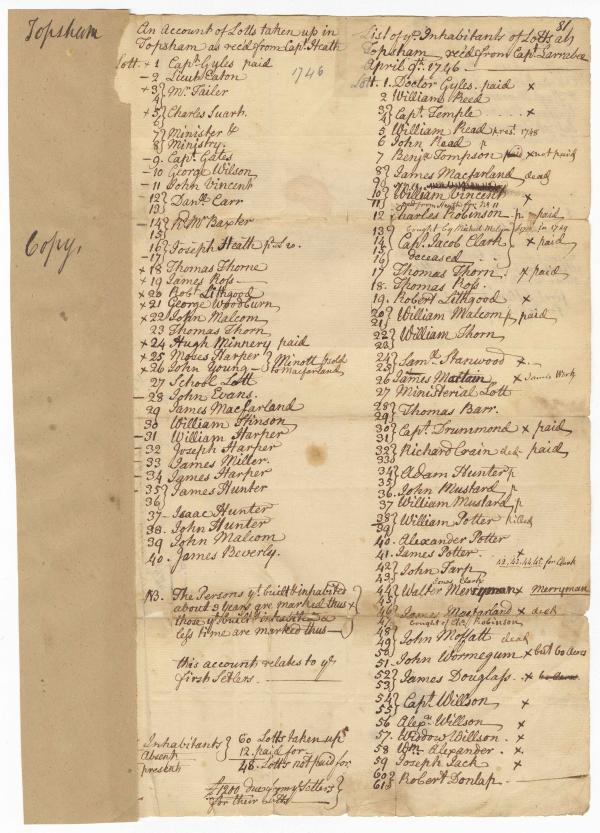 Topsham
Copy,
An Account of Lotts taken up in
Topsham as rec'd from Capt. Heath
1746
Lott. + 1 Capt. Gyles paid
– 2 Lieut. Eaton
+ 3} Mr. Tailer
4}
+ 5} Charles
6}
7} Minister &
8} Ministry.
– 9. Capt. Gates
– 10 George Wilson
– 11 John Vincent
– 12} Danll. Carr
13}
– 14} Mr. Baxter
15}
16} Joseph Heath
17}
× 18 Thomas Thorne
+ 19 James Ross
× 20 Robt. Lithgood
× 21 George Woodburn
× 22 John Malcom
23 Thomas Thorn
× 24 Hugh Minnery paid
× 25 Moses Harper } Minott
× 26 John Young } to Macfarland
27 School Lott
– 28 John Evans.
29 James Macfarland
30 William Stinson
– 31 William Harper
– 32 Joseph Harper
– 33 James Miller.
– 34 James Harper
– 35} James Hunter
36}
37 – Isaac Hunter
38. John Hunter
39 John Malcom
40. James Beverly.
NB. The Persons yt. built & inhabited
about 3 years are marked thus ×
those yt. built & inhabited a
less time are marked thus –
this account relates to ye
first Setlers.
Inhabitants } 60 Lotts taken up
Absent } 12. paid for
present } 48. Lotts not paid for
£1200 due from ye Setlers
for their Lotts
81
List of ye. Inhabitants of Lotts at
Topsham rec'd from Capt. Larrabee
April 9th. 1746
Lott. 1. Doctor Gyles. paid ×
2 William Reed
3} Capt. Temple ×
4}
5 William Read 1748
6 John Read p
7 Benja Tompson paid × not paid
8} James Macfarland dead
9}
10} William Vincent ×
11}
12 Charles Robinson p. paid
13}
14} Capt. Jacob Clark × paid
15} deceased
16}
17 Thomas Thorn. × paid
18. Thomas Ross.
19. Robert Lithgood ×
20} William Malcom p paid
21}
22} William Thorn
23}
24} Saml. Stanwood ×
25}
26 James Martain × James Work
27 Ministerial Lott
28} Thomas Barr.
29}
30} Capt. Drummond × paid
31}
32} Richard Crain dead paid
33}
34} Adam Hunter p
35}
36. John Mustard p
37 William Mustard p
38} William Potter killed
39}
40. Alexander Potter
41. James Potter ×
42. 43. 44. 45. for Clark
42} John Tarp
43}
44} Walter Merryman × Merryman
45}
46 James Macfarland × dead
47 bought of Robinson
48} John Moffatt dead
49}
50} John Wormegum × but 60 Acres
51}
52} James Douglass. ×
53}
54} Capt. Willson ×
55}
56 Alexr. Willson ×
57. Widdow Willson. ×
58 Wm. Alexander. ×
59 Joseph Jack ×
60} Robert Donlap
61}